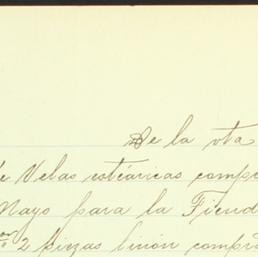 De la vta
de Velas estéaricas comp
Mayo para la Tiend
2 piezas linón compr